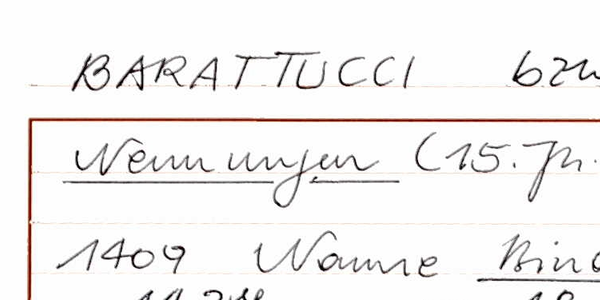 BARATTUCCI bzw
Nennungen (15. Jh.
1409 Name